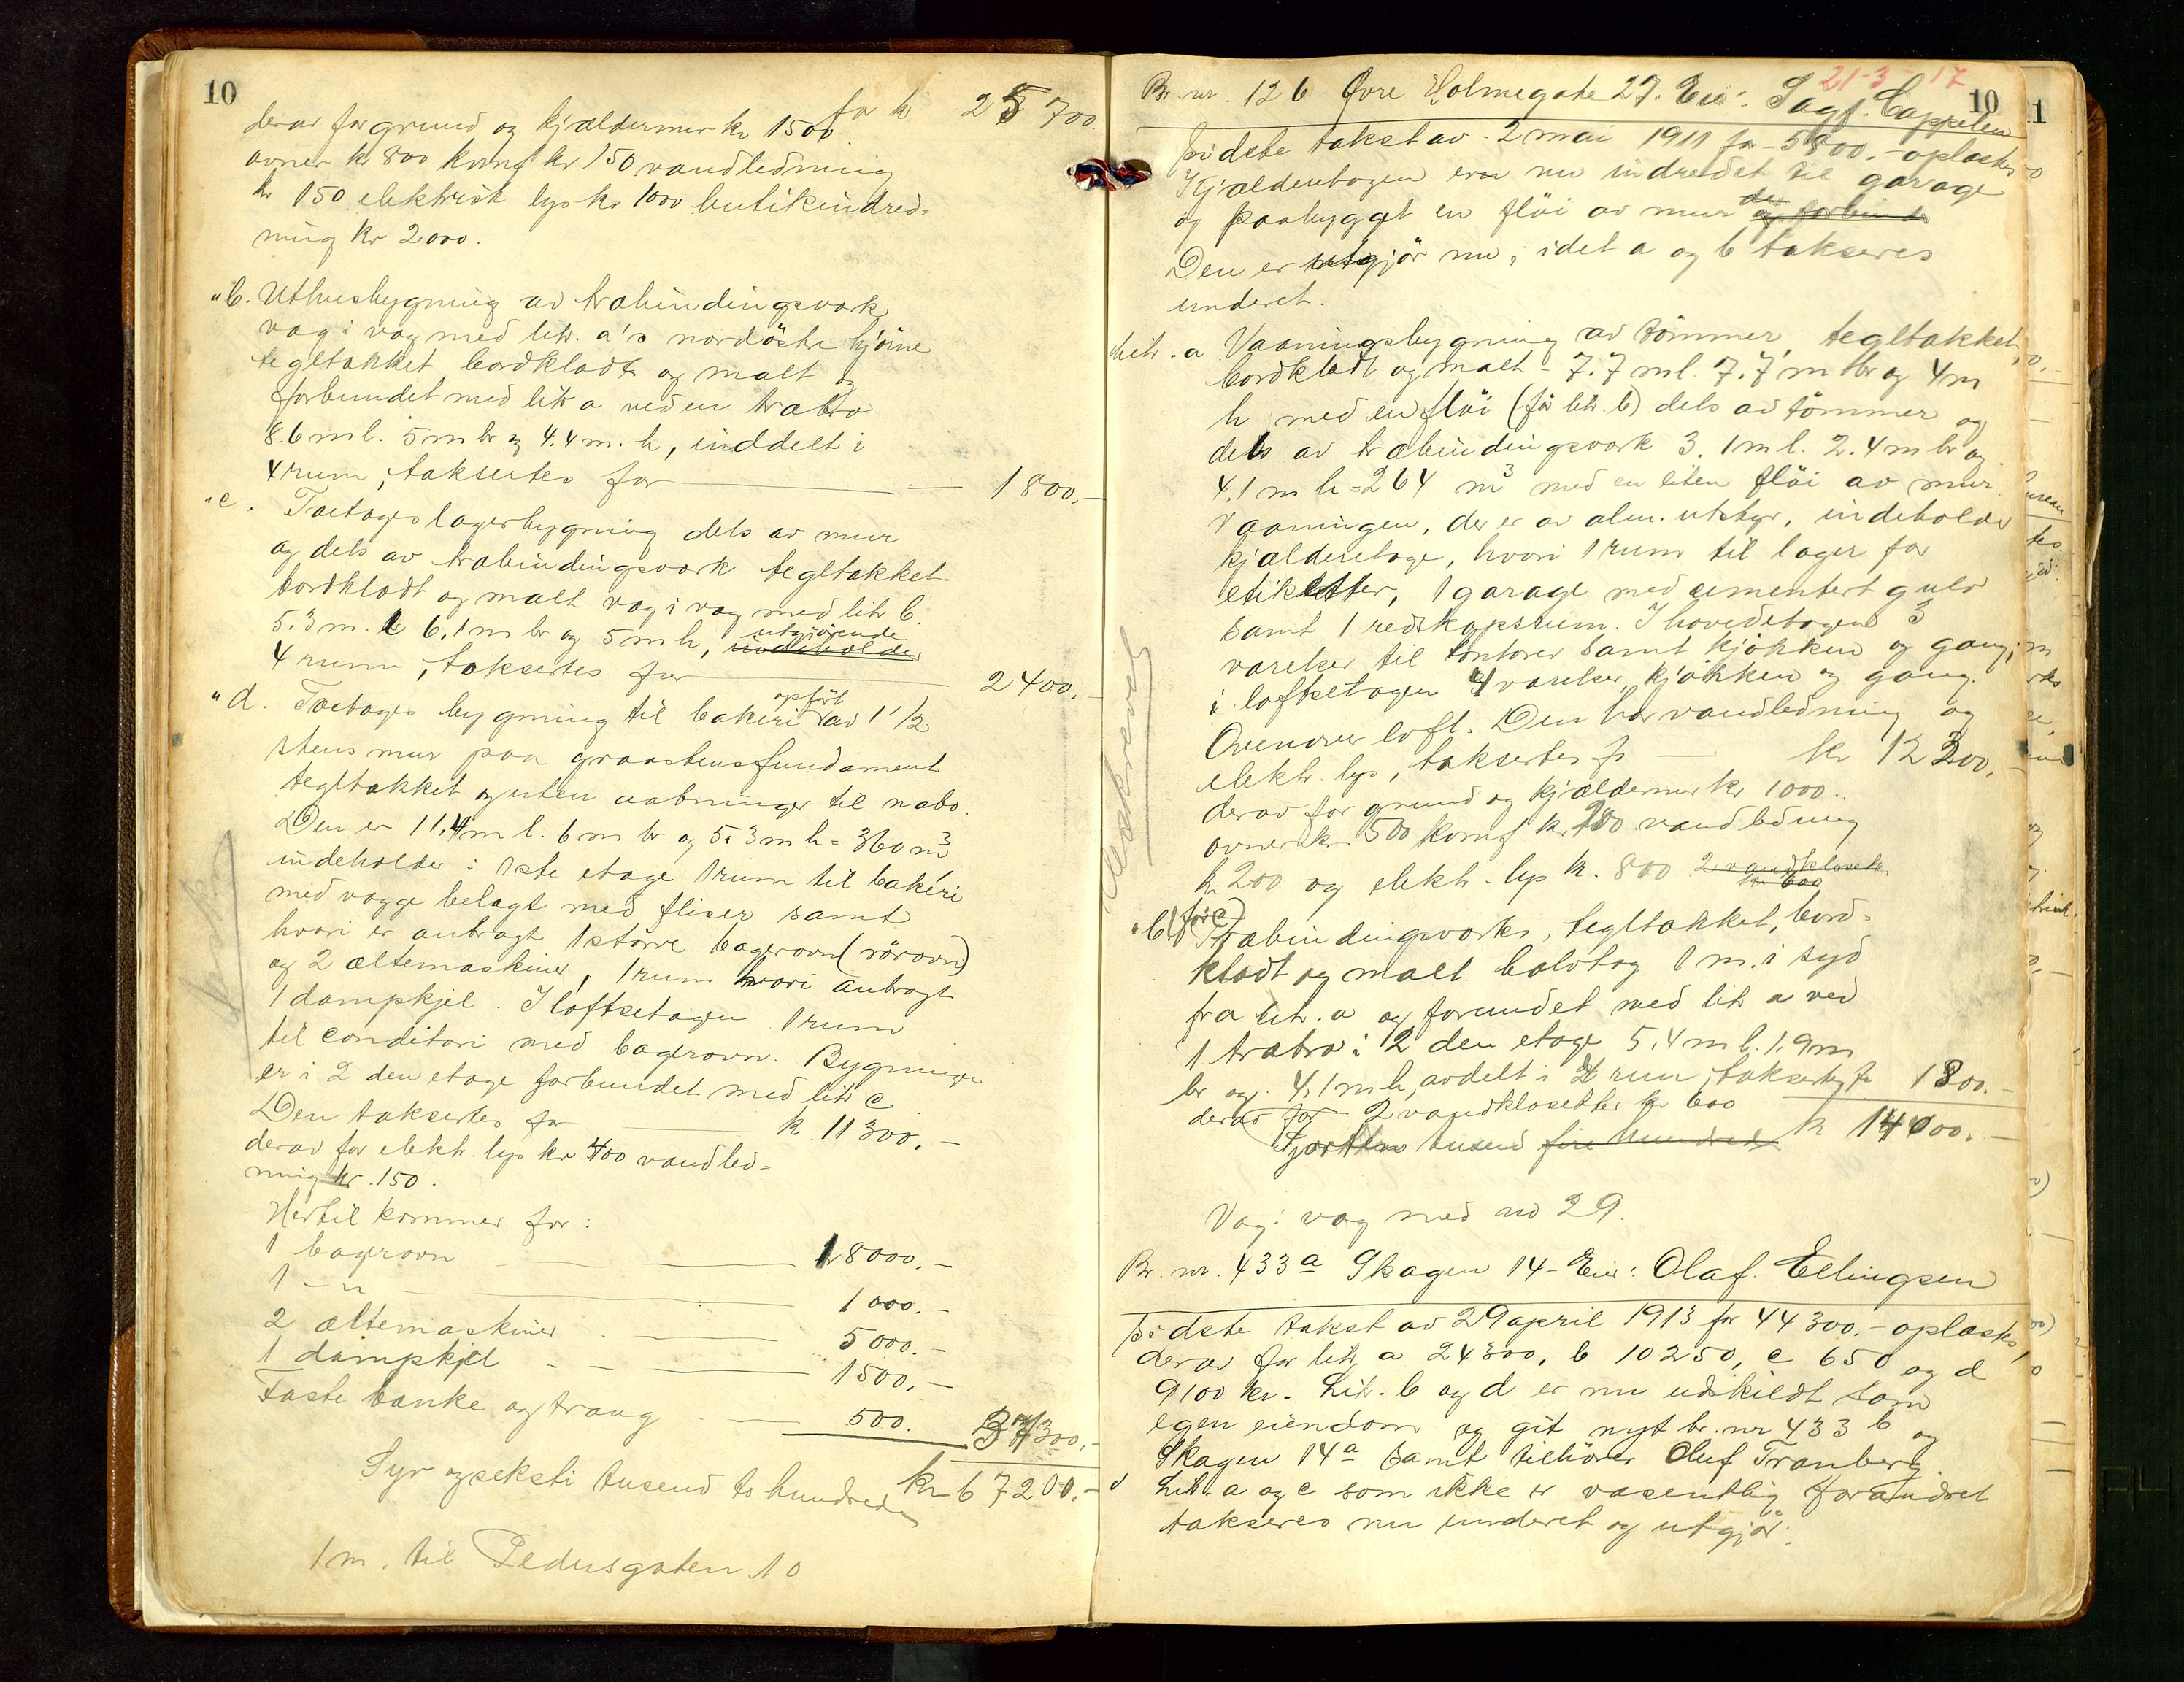 10
for kr 25 700
derav for grund og kjældermur kr 1500
ovner kr 800 komf kr 150 vandledning
kr 150 elektrisk lys kr 1000 butikindred-
ning kr 2000.
" b. Uthusbygning av træbindingsværk
væg i væg med litr. a's nordöstre hjörne
tegltækket bordklædt og malt og
forbundet med litr a ved en træbro
8.6 m l. 5 m br og 4.4 m. h, inddelt i
4 rum, taksertes for — 1800.-
" c. Toetages lagerbygning dels av mur
og dels av træbindingsværk tegltækket
bordklædt og malt væg i væg med litr b.
5.3 m. l 6,1 m br og 5 m h, utgjörende indeholder
4 rum, taksertes for — 2400,-
" d. Toetages bygning til bakeri opfört av 1 1/2
stens mur paa graastensfundament
tegltækket og uten aabninger til nabo.
Den er 11,4 m l. 6 m br og 5.3 m h = 360 m3
indeholder: 1ste etage 1 rum til bakeri
med vægge belagt med fliser samt
hvori er anbragt 1 större bagerovn (rörovn)
og 2 æltemaskiner, 1 rum hvori anbragt
1 dampkjel. I loftsetagen 1 rum
til conditori med bagerovn. Bygningen
er i 2 den etage forbundet med litr c
Den taksertes for — kr. 11 300.-
derav for elektr. lys kr 400 vandled-
ning kr. 150.
Hertil kommer for:
1 bagerovn — 18000.-
1 -"- — 1000.-
2 æltemaskiner — 5000.-
1 dampkjel — 1500.-
Faste bænke og traug — 500.
37 300.-
Syv og seksti tusend to hundrede kr 67200.-
1 m. til Pedersgaten 10
21-3-17
10
Br. nr. 126 Øvre Holmegate 27. Eier: Sagf. Cappelen
Sidste takst av 2 mai 1911 for 5800.- oplæstes
Kjælderetagen er nu indredet til garage
og paabygget en flöi av mur og forbinde
Den er utgjör nu, idet a og b takseres
underet.
Litr. a Vaaningsbygning av tömmer, tegltækket,
bordklædt og malt - 7.7 m l. 7.7 m br og 4 m
h med en flöi (för litr. b) dels av tömmer og
dels av træbindingsværk 3.1 m l. 2.4 m br og
4,1 m h = 264 m3 med en liten flöi av mur
Vaaningen, der er av alm. utstyr, indeholder
kjælderetage, hvori 1 rum til lager for
etiketter, 1 garage med cementert gulv
samt 1 redskapsrum. I hovedetagen 3
værelser til kontorer samt kjökken og gang;
i loftsetagen 4 værelser, kjökken og gang.
Ovenover loft. Den har vandledning og
elektr. lys, taksertes for — kr 12 200.
derav for grund og kjældermur kr 1000..
ovner kr. 500 komf kr 200 vandledning
kr 200 og elektr. lys kr. 800 2 vandklosett.
kr 600
" b (för c) Træbindingsværks, tegltækket, bord-
klædt og malt halvtag 1 m. i syd
fra litr. a og forundet med litr a ved
1 træbro i 2 den etage 5,4 m l. 1,9 m
br og 4,1 m h, avdelt i 4 rum, taksertes for 1800.-
derav for 2 vandklosetter kr 600
Fjorten tusend fire hundrede kr 14000.-
Væg i væg med no 29.
Br. nr. 433 a Skagen 14 - Eier: Olaf. Ellingsen
Sidste takst av 29 april 1913 for 44 300.- oplæstes,
derav for litr a 24300, b 10250, c 650 og d
9100 kr. Litr. b og d er nu udskildt som
egen eiendom og git nyt br. nr 433 b og
Skagen 14a samt tilhörer Oluf Tranberg.
Litr a og c som ikke er væsentlig forandret
takseres nu underet og utgjör: